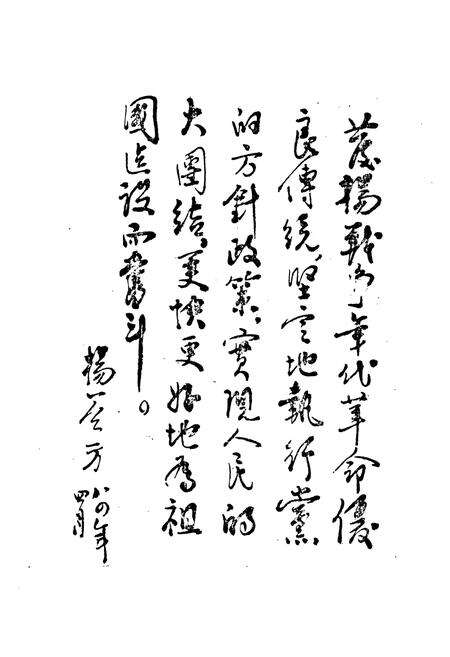 發揚戰爭年代革命優
良傳統，堅定地執行黨
的方針政策，實現人民的
大團結，更快更好地為祖
國建設而奮斗。
楊方
八四年
四月